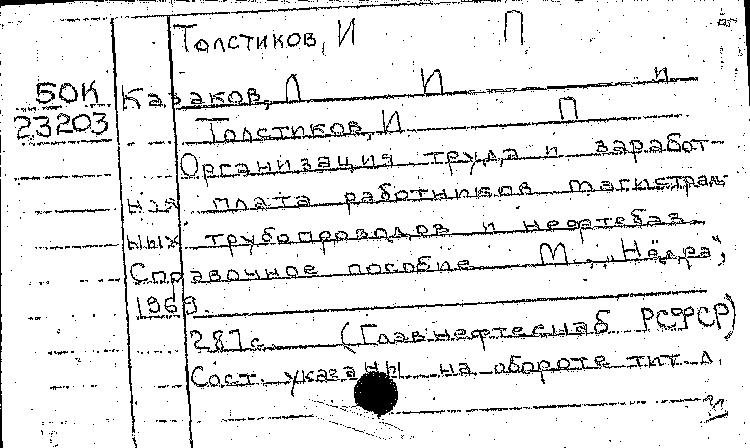 Толстиков, И П
50К Казаков, Л И и
23203 Толстиков, И П
Организация труда и заработ-
ная плата работников магистраль-
ных трубопроводов и нефтебаз.
Справочное пособие М., "Недра",
1969.
287с. (Главнефтеснаб РСФСР)
Сост. указаны на обороте тит. л.